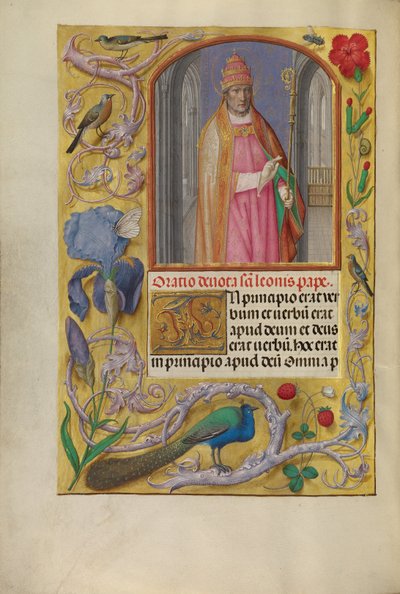 Oratio deuota sc̄i leonis pape.
IN principio erat ver
bum et verbū erat
apud deum et deus
erat verbū. Hoc erat
in principio apud deū Omnia p